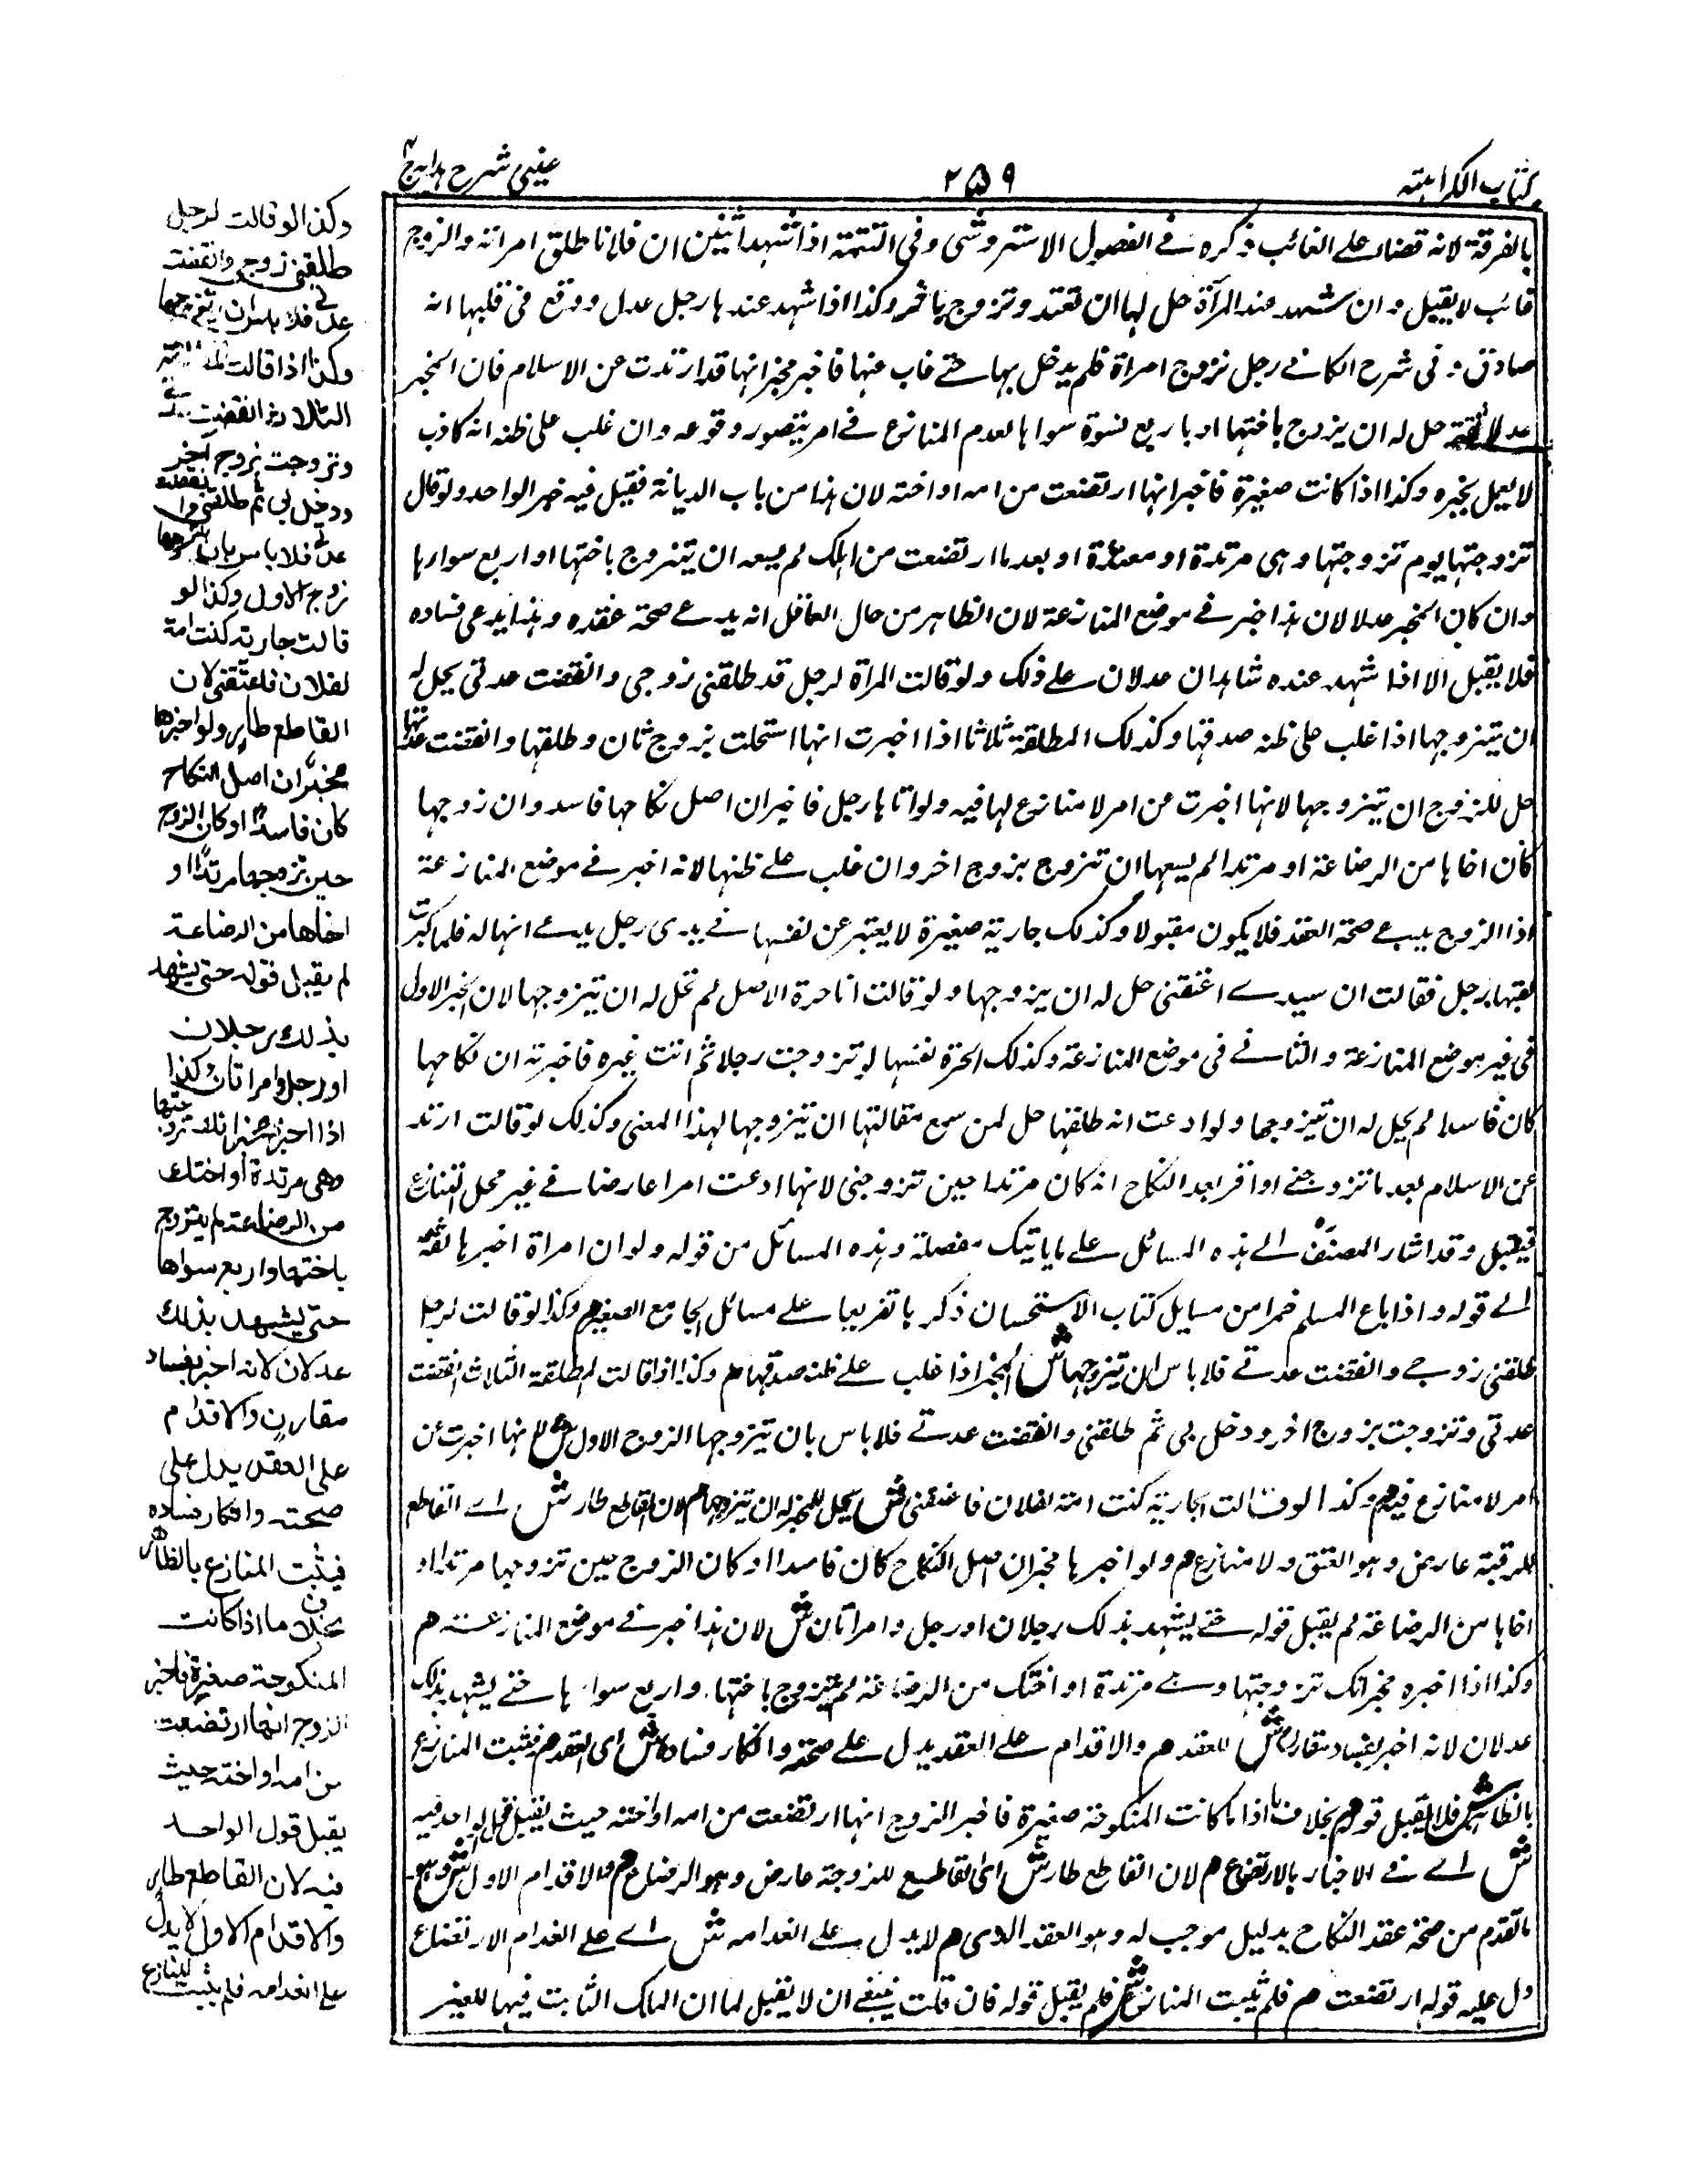 كتاب الكراهته
٢٥٩
عينى شرح هدايه ج ٤
بالفرقة لانه قضاء على الغائب ذكره فى الفصول الاستروشنى وفى التتمة اذا شهد اثنين ان فلانا طلق امراته والزوج
غائب لا يقبل وان شهد عند المرأة حل لها ان تعتد وتزوج بآخر وكذا اذا شهد عندها رجل عدل ووقع فى قلبها انه
صادق وفى شرح الكافى رجل تزوج امراة فلم يدخل بها حتى غاب عنها فاخبر مخبر انها قد ارتدت عن الاسلام فان المخبر
عدلا ثقة حل له ان يتزوج باختها او باربع نسوة سواها لعدم المنازع فى امر يتصور وقوعه وان غلب على ظنه انه كاذب
لا يعمل بخبره وكذا اذا كانت صغيرة فاخبر انها ارتضعت من امه او اخته لان هذا من باب الديانة فقبل فيه خبر الواحد ولو قال
تزوجتها يوم تزوجتها وهى مرتدة او معتدة او بعد ما ارتضعت من امك لم يسعه ان يتزوج باختها او اربع سوارها
وان كان المخبر عدلا لان هذا خبر فى موضع المنازعة لان الظاهر من حال العاقل انه يدعى صحة عقده وهذا يدعى فساده
فلا يقبل الا اذا شهد عنده شاهدان عدلان على ذلك ولو قالت المراة لرجل قد طلقنى زوجى وانقضت عدتى يحل له
ان يتزوجها اذا غلب على ظنه صدقها وكذلك المطلقة ثلاثا اذا اخبرت انها استحلت بزوج ثان وطلقها وانقضت عدتها
حل للزوج ان يتزوجها لانها اخبرت عن امر لا منازع لها فيه ولو اتاها رجل فاخبر ان اصل نكاحها فاسد وان زوجها
كان اخاها من الرضاعة او مرتدا لم يسعها ان تتزوج بزوج اخر وان غلب على ظنها لانه اخبر فى موضع المنازعة
اذ الزوج يدعى صحة العقد فلا يكون مقبولا وكذلك جارية صغيرة لا يعتبر عن نفسها فى يدى رجل يدعى انها له فلما كبرت
لقيها رجل فقالت ان سيدى اعتقنى حل له ان يتزوجها ولو قالت انا حرة الاصل لم تحل له ان يتزوجها لان الخبر الاول
فى غير موضع المنازعة والثانى فى موضع المنازعة وكذلك الحرة نفسها لو تزوجت رجلا ثم اتت غيره فاخبرته ان نكاحها
كان فاسدا لم يحل له ان يتزوجها ولو ادعت انه طلقها حل لمن سمع مقالتها ان يتزوجها لهذا المعنى وكذلك لو قالت ارتد
عن الاسلام بعد ما تزوجنى او اقر بعد النكاح انه كان مرتدا حين تزوجنى لانها ادعت امرا عارضا فى غير محل التنازع
فيقبل وقد اشار المصنف الى هذه المسائل على ما ياتيك مفصلة وهذه المسائل من قوله ولو ان امراة اخبرها ثقة
الى قوله واذا باع المسلم خمرا من مسايل كتاب الاستحسان ذكرها تفريعا على مسائل الجامع الصغير م وكذا لو قالت لرجل
طلقنى زوجى وانقضت عدتى فلا باس ان يتزوجها ش المخبر اذا غلب على ظنه صدقها م وكذا اذا قالت المطلقة الثلاث انقضت
عدتى وتزوجت بزوج اخر ودخل بى ثم طلقنى وانقضت عدتى فلا باس بان يتزوجها الزوج الاول ش لانها اخبرت عن
امر لا منازع فيه م وكذا لو قالت الجارية كنت امة لفلان فاعتقنى ش يحل للمخبر له ان يتزوجها م لان القاطع طار ش اى القاطع
للرقبة عارض وهو العتق ولا منازع م ولو اخبرها مخبر ان اصل النكاح كان فاسدا او كان الزوج حين تزوجها مرتدا او
اخاها من الرضاعة لم يقبل قوله حتى يشهد بذلك رجلان او رجل وامراتان ش لان هذا خبر فى موضع المنازعة م
وكذا اذا اخبره مخبر انك تزوجتها وهى مرتدة او اختك من الرضاعة لم يتزوج باختها واربع سواها حتى يشهد بذلك
عدلان لانه اخبر بفساد مقارن ش للعقد م والاقدام على العقد يدل على صحته وانكار فساده ش اى العقد م فيثبت المنازع
بالظاهر ش فلا يقبل قوله م بخلاف ما اذا كانت المنكوحة صغيرة فاخبر الزوج انها ارتضعت من امه او اخته حيث يقبل قول الواحد فيه
ش اى فى الاخبار بالارتضاع م لان القاطع طار ش اى القاطع للزوجة عارض وهو الرضاع م والاقدام الاول ش وهو
ما تقدم من صحة عقد النكاح بدليل موجب له وهو العقد الذى م لا يدل على انعدامه ش اى على انعدام الارتضاع
دل عليه قوله ارتضعت م فلم يثبت المنازع ش فلم يقبل قوله فان قلت ينبغى ان لا يقبل لما ان الملك الثابت فيها للغير
وكذا لو قالت لرجل
طلقنى زوجى وانقضت
عدتى فلا باس ان يتزوجها
وكذا اذا قالت المطلقة
الثلاث انقضت عدتى
وتزوجت بزوج آخر
ودخل بى ثم طلقنى وانقضت
عدتى فلا باس بان يتزوجها
زوج الاول وكذا لو
قالت جارية كنت امة
لفلان فاعتقنى لان
القاطع طار ولو اخبرها
مخبر ان اصل النكاح
كان فاسدا او كان الزوج
حين تزوجها مرتدا او
اخاها من الرضاعة
لم يقبل قوله حتى يشهد
بذلك رجلان
او رجل وامراتان وكذا
اذا اخبره مخبر انك تزوجتها
وهى مرتدة او اختك
من الرضاعة لم يتزوج
باختها واربع سواها
حتى يشهد بذلك
عدلان لانه اخبر بفساد
مقارن والاقدام
على العقد يدل على
صحته وانكار فساده
فيثبت المنازع بالظاهر
بخلاف ما اذا كانت
المنكوحة صغيرة فاخبر
الزوج انها ارتضعت
من امه او اخته حيث
يقبل قول الواحد
فيه لان القاطع طار
والاقدام الاول لا يدل
على انعدامه فلم يثبت المنازع